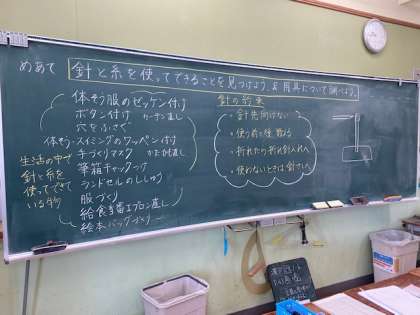 めあて 針と糸を使ってできることを見つけよう。& 用具について調べよう。
体そう服のゼッケン付け
ボタン付け カーテン直し
穴をふさぐ
体そう・スイミングのワッペン付け
手づくりマスク かたひも直し
筆箱チャック
ランドセルのししゅう
服づくり
給食当番エプロン直し
絵本バッグづくり
生活の中で
針と糸を
使ってできて
いる物
針の約束
・針先向けない
・使う前と後、数える
・折れたの折れ針入れへ
・使わないときは針さしへ